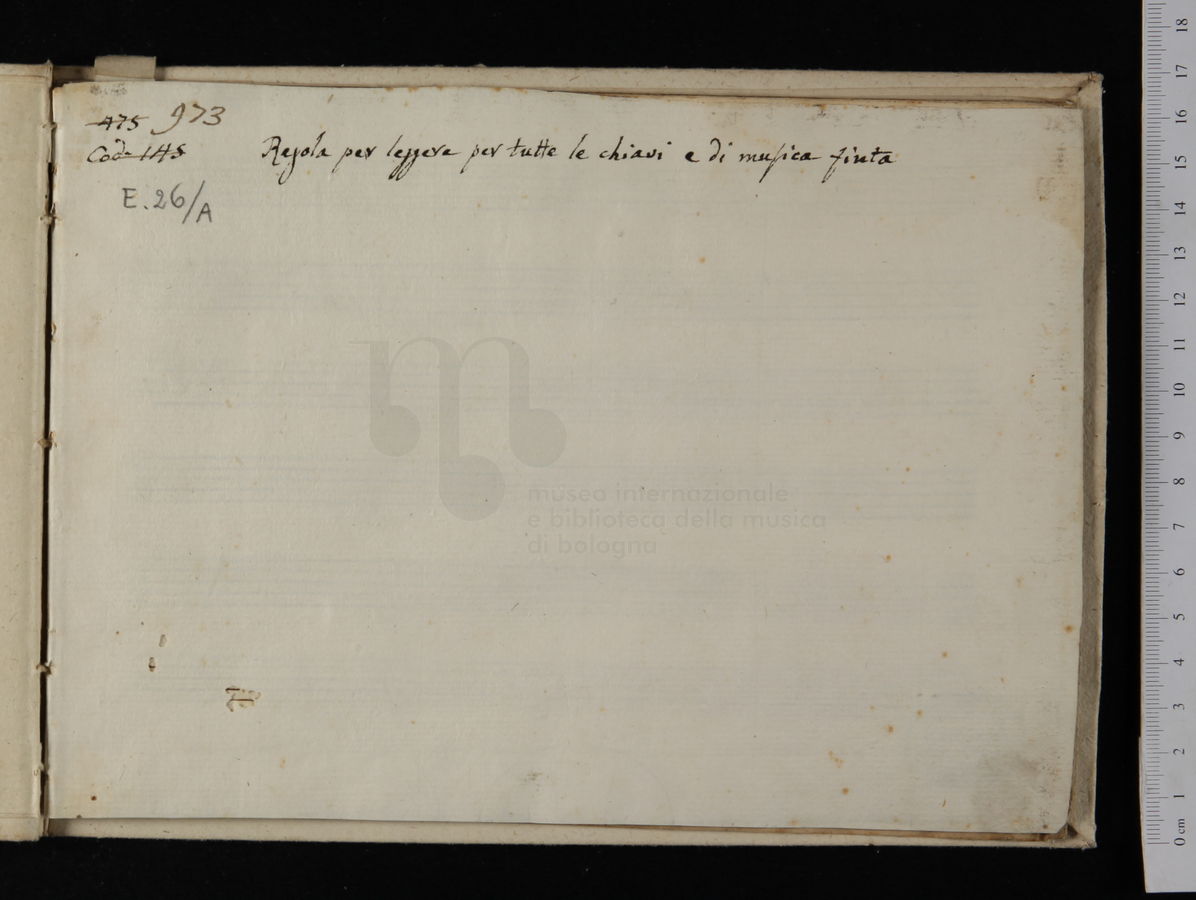 475 973
Cod. 145 Regola per leggere per tutte le chiavi e di musica finta
E.26/A
museo internazionale
e biblioteca della musica
di bologna
0 cm 1 2 3 4 5 6 7 8 9 10 11 12 13 14 15 16 17 18